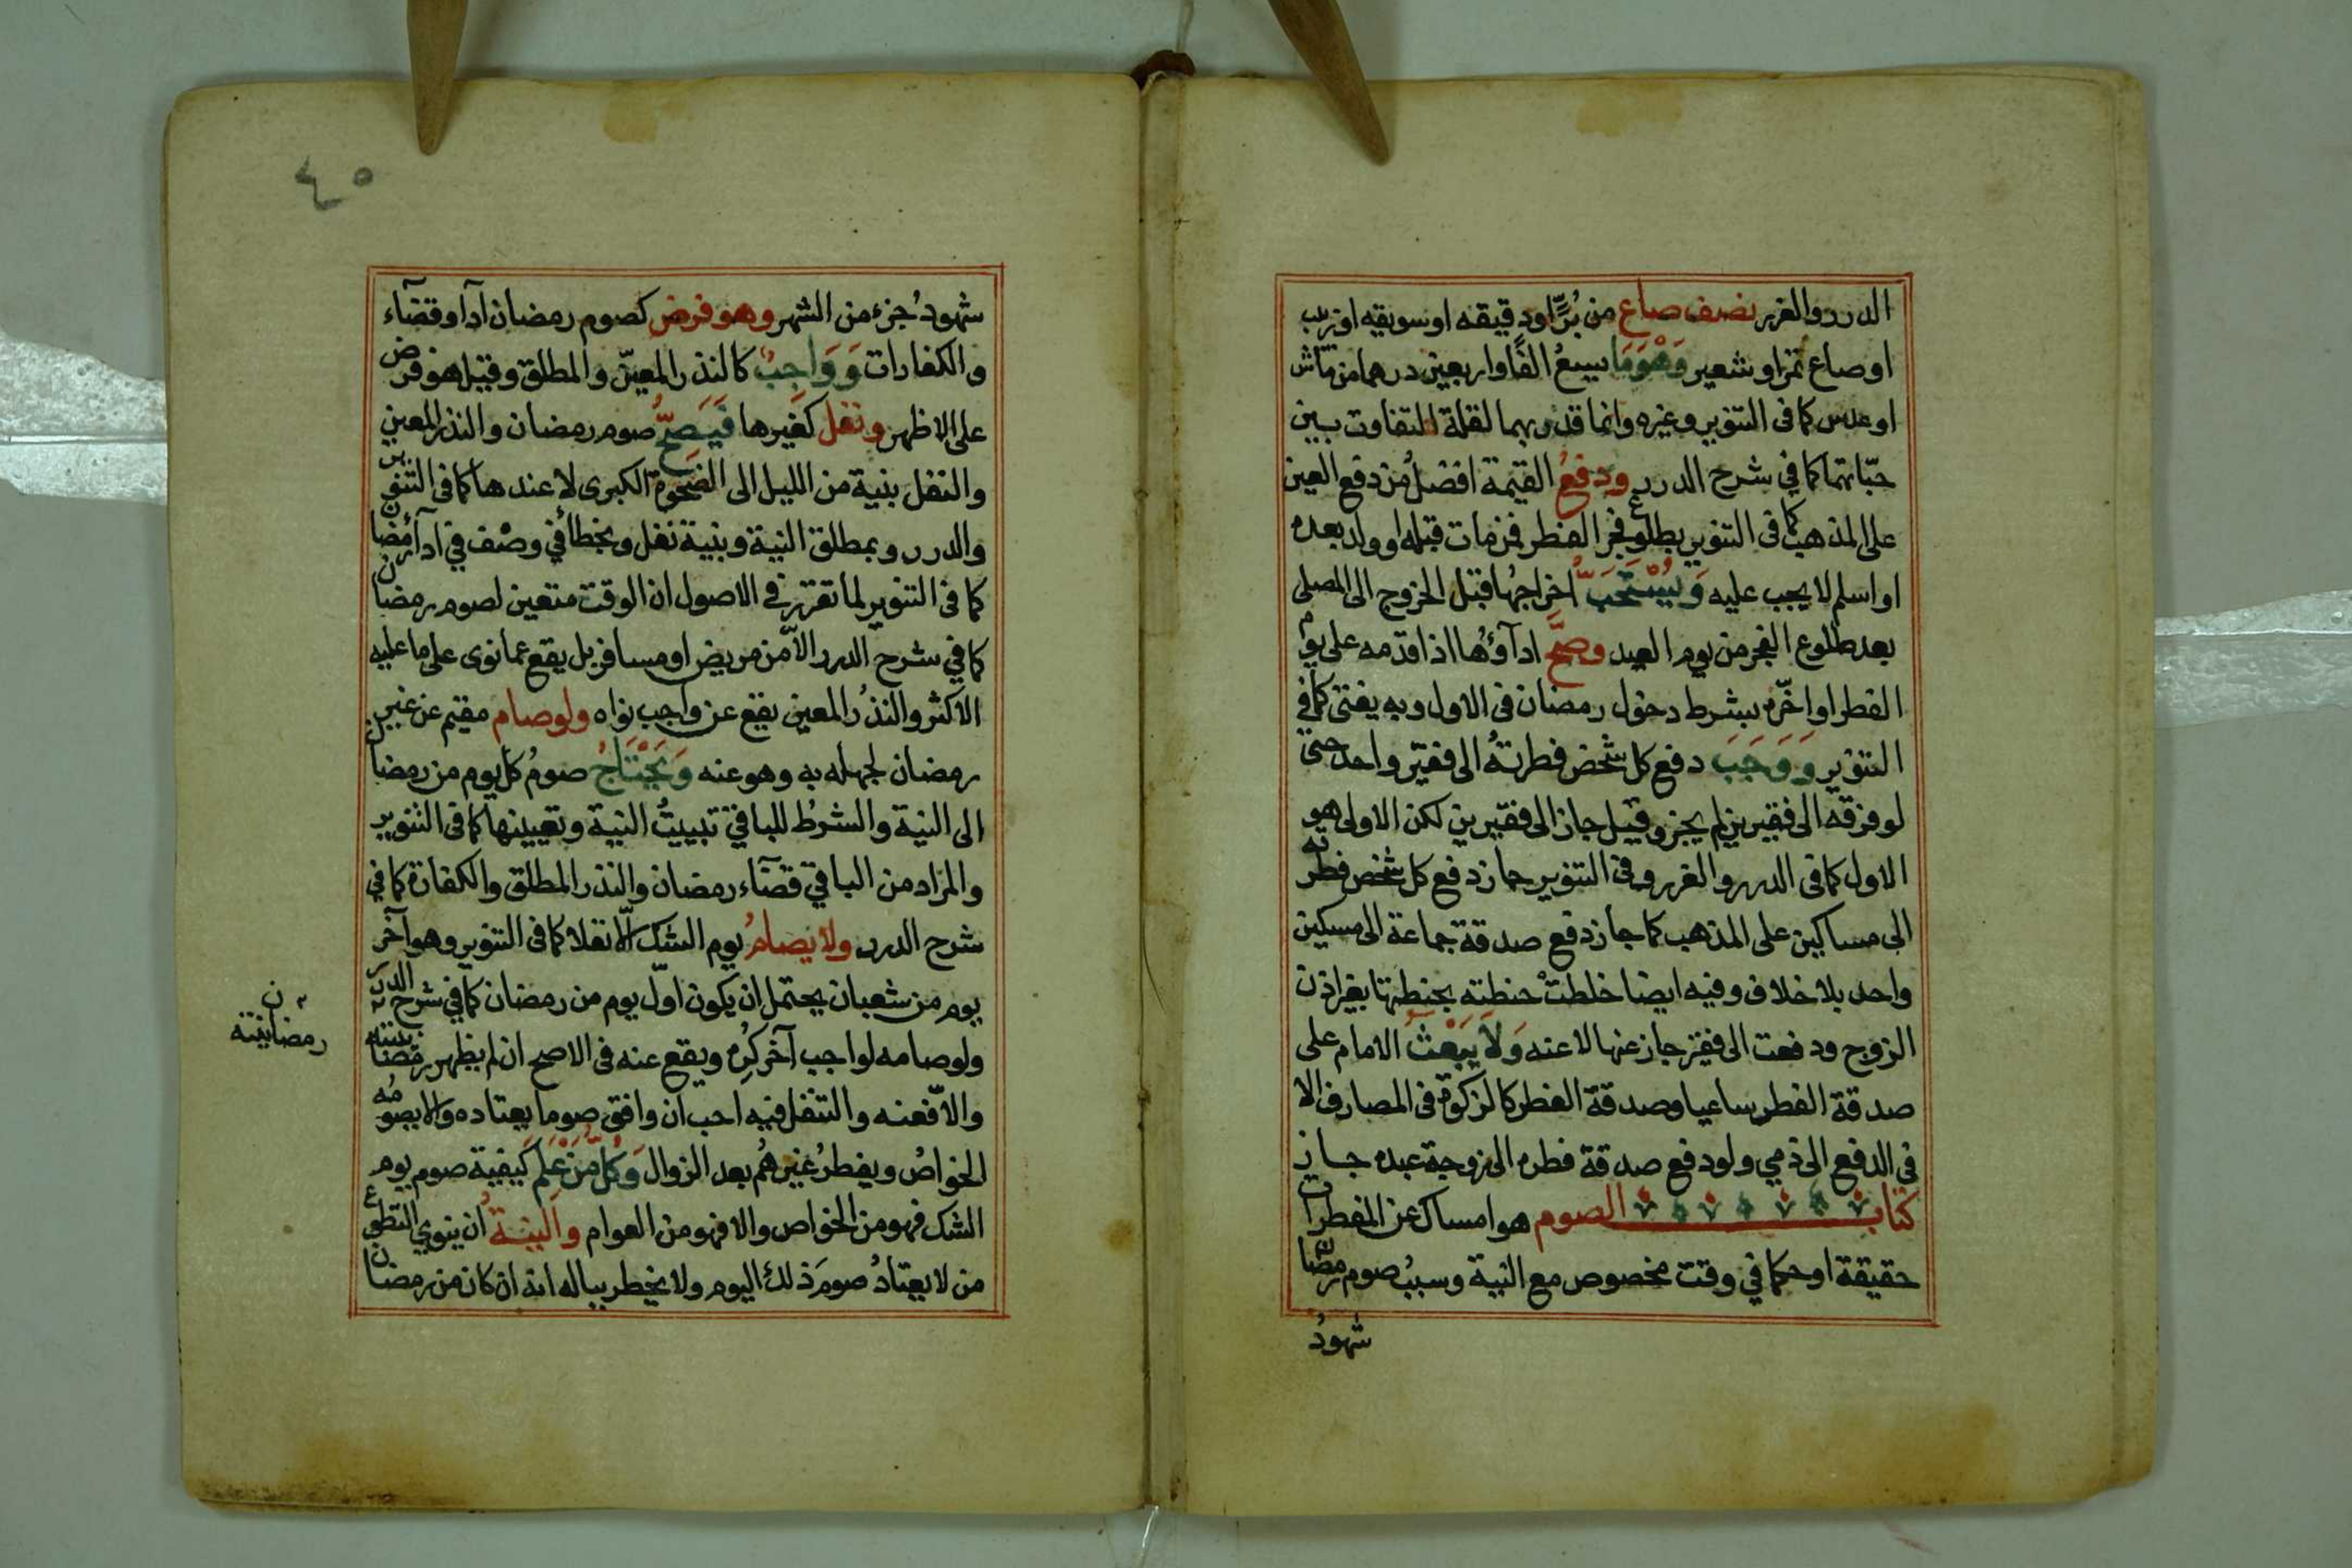 الدرر والغرر نصف صاع من بُرٍّ او دقيقه او سويقه او زبيب
او صاع تمر او شعير وَهُوَ مَا يسعُ الفًا واربعين درهما من ماش
او عدس كما فى التنوير وغيره وانما قدر بهما لقلة التفاوت بين
حبّاتهما كما في شرح الدرر ودفعُ القيمة افضلُ من دفع العين
على المذهب كما فى التنوير بطلوع فجر الفطر فمن مات قبله او ولد بعده
او اسلم لا يجب عليه وَيُسْتَحَبُّ اخراجُها قبل الخروج الى المصلى
بعد طلوع الفجر من يوم العيد وصحَّ ادآؤُها اذا قدمه على يوم
الفطر او اخّره بشرط دخول رمضان فى الاول وبه يفتى كما في
التنوير وَوَجَبَ دفع كل شخص فطرتهُ الى فقير واحد حتى
لو فرقه الى فقيرين لم يجز وقيل جاز الى فقيرين لكن الاولى هو
الاول كما فى الدرر والغرر وفى التنوير جاز دفع كل شخص فطرته
الى مساكين على المذهب كما جاز دفع صدقة جماعة الى مسكين
واحد بلا خلاف وفيه ايضا خلطتْ حنطته بحنطتها بغير اذن
الزوج ودفعت الى فقير جاز عنها لا عنه وَلَا يَبْعَثُ الامام على
صدقة الفطر ساعيا وصدقة الفطر كالزكوة فى المصارف الا
في الدفع الى ذمي ولو دفع صدقة فطره الى زوجة عبده جاز
كتاب الصوم هو امساك عن المفطرات
حقيقة او حكما في وقت مخصوص مع النية وسببُ صوم رمضان
شهودُ
٤٥
شهودُ جزء من الشهر وهو فرض كصوم رمضان ادآ وقضآء
والكفارات وَوَاجِبٌ كالنذر المعيّن والمطلق وقيل هو فرض
على الاظهر ونفل كغيرها فَيَصَحُّ صوم رمضان والنذر المعين
والنفل بنية من الليل الى الضحوة الكبرى لا عندها كما فى التنوير
والدرر وبمطلق النية وبنية نفل وبخطأ في وصْف في ادآء رمضان
كما فى التنوير لما تقرر في الاصول ان الوقت متعين لصوم رمضان
كما في شرح الدرر الاّ من مريض او مسافر بل يقع عما نوى على ما عليه
الاكثر والنذرُ المعين يقع عن واجب نواه ولو صام مقيم عن غير
رمضان لجهله به وهو عنه وَيَحْتَاجُ صومُ كل يوم من رمضان
الى النية والشرطُ للباقي تبييتُ النية وتعيينها كما فى التنوير
والمراد من الباقي قضآء رمضان والنذر المطلق والكفارة كما في
شرح الدرر ولا يصامُ يوم الشك الّا نفلا كما فى التنوير وهو آخر
يوم من شعبان يحتمل ان يكون اوّل يوم من رمضان كما في شرح الدرر
ولو صامه لواجب آخر كُرِه ويقع عنه فى الاصح ان لم يظهر رمضانيته
والاّ فعنه والتنفل فيه احب ان وافق صوما يعتاده والا يصومُه
الخواصُ ويفطرُ غيرهُم بعد الزوال وَكُلُّ مَنْ عَلِمَ كيفية صوم يوم
الشك فهو من الخواص والا فهو من العوام والنيةُ ان ينوي التطوع
من لا يعتادُ صومَ ذلك اليوم ولا يخطر بباله انه ان كان من رمضان
ن
رمضانيته